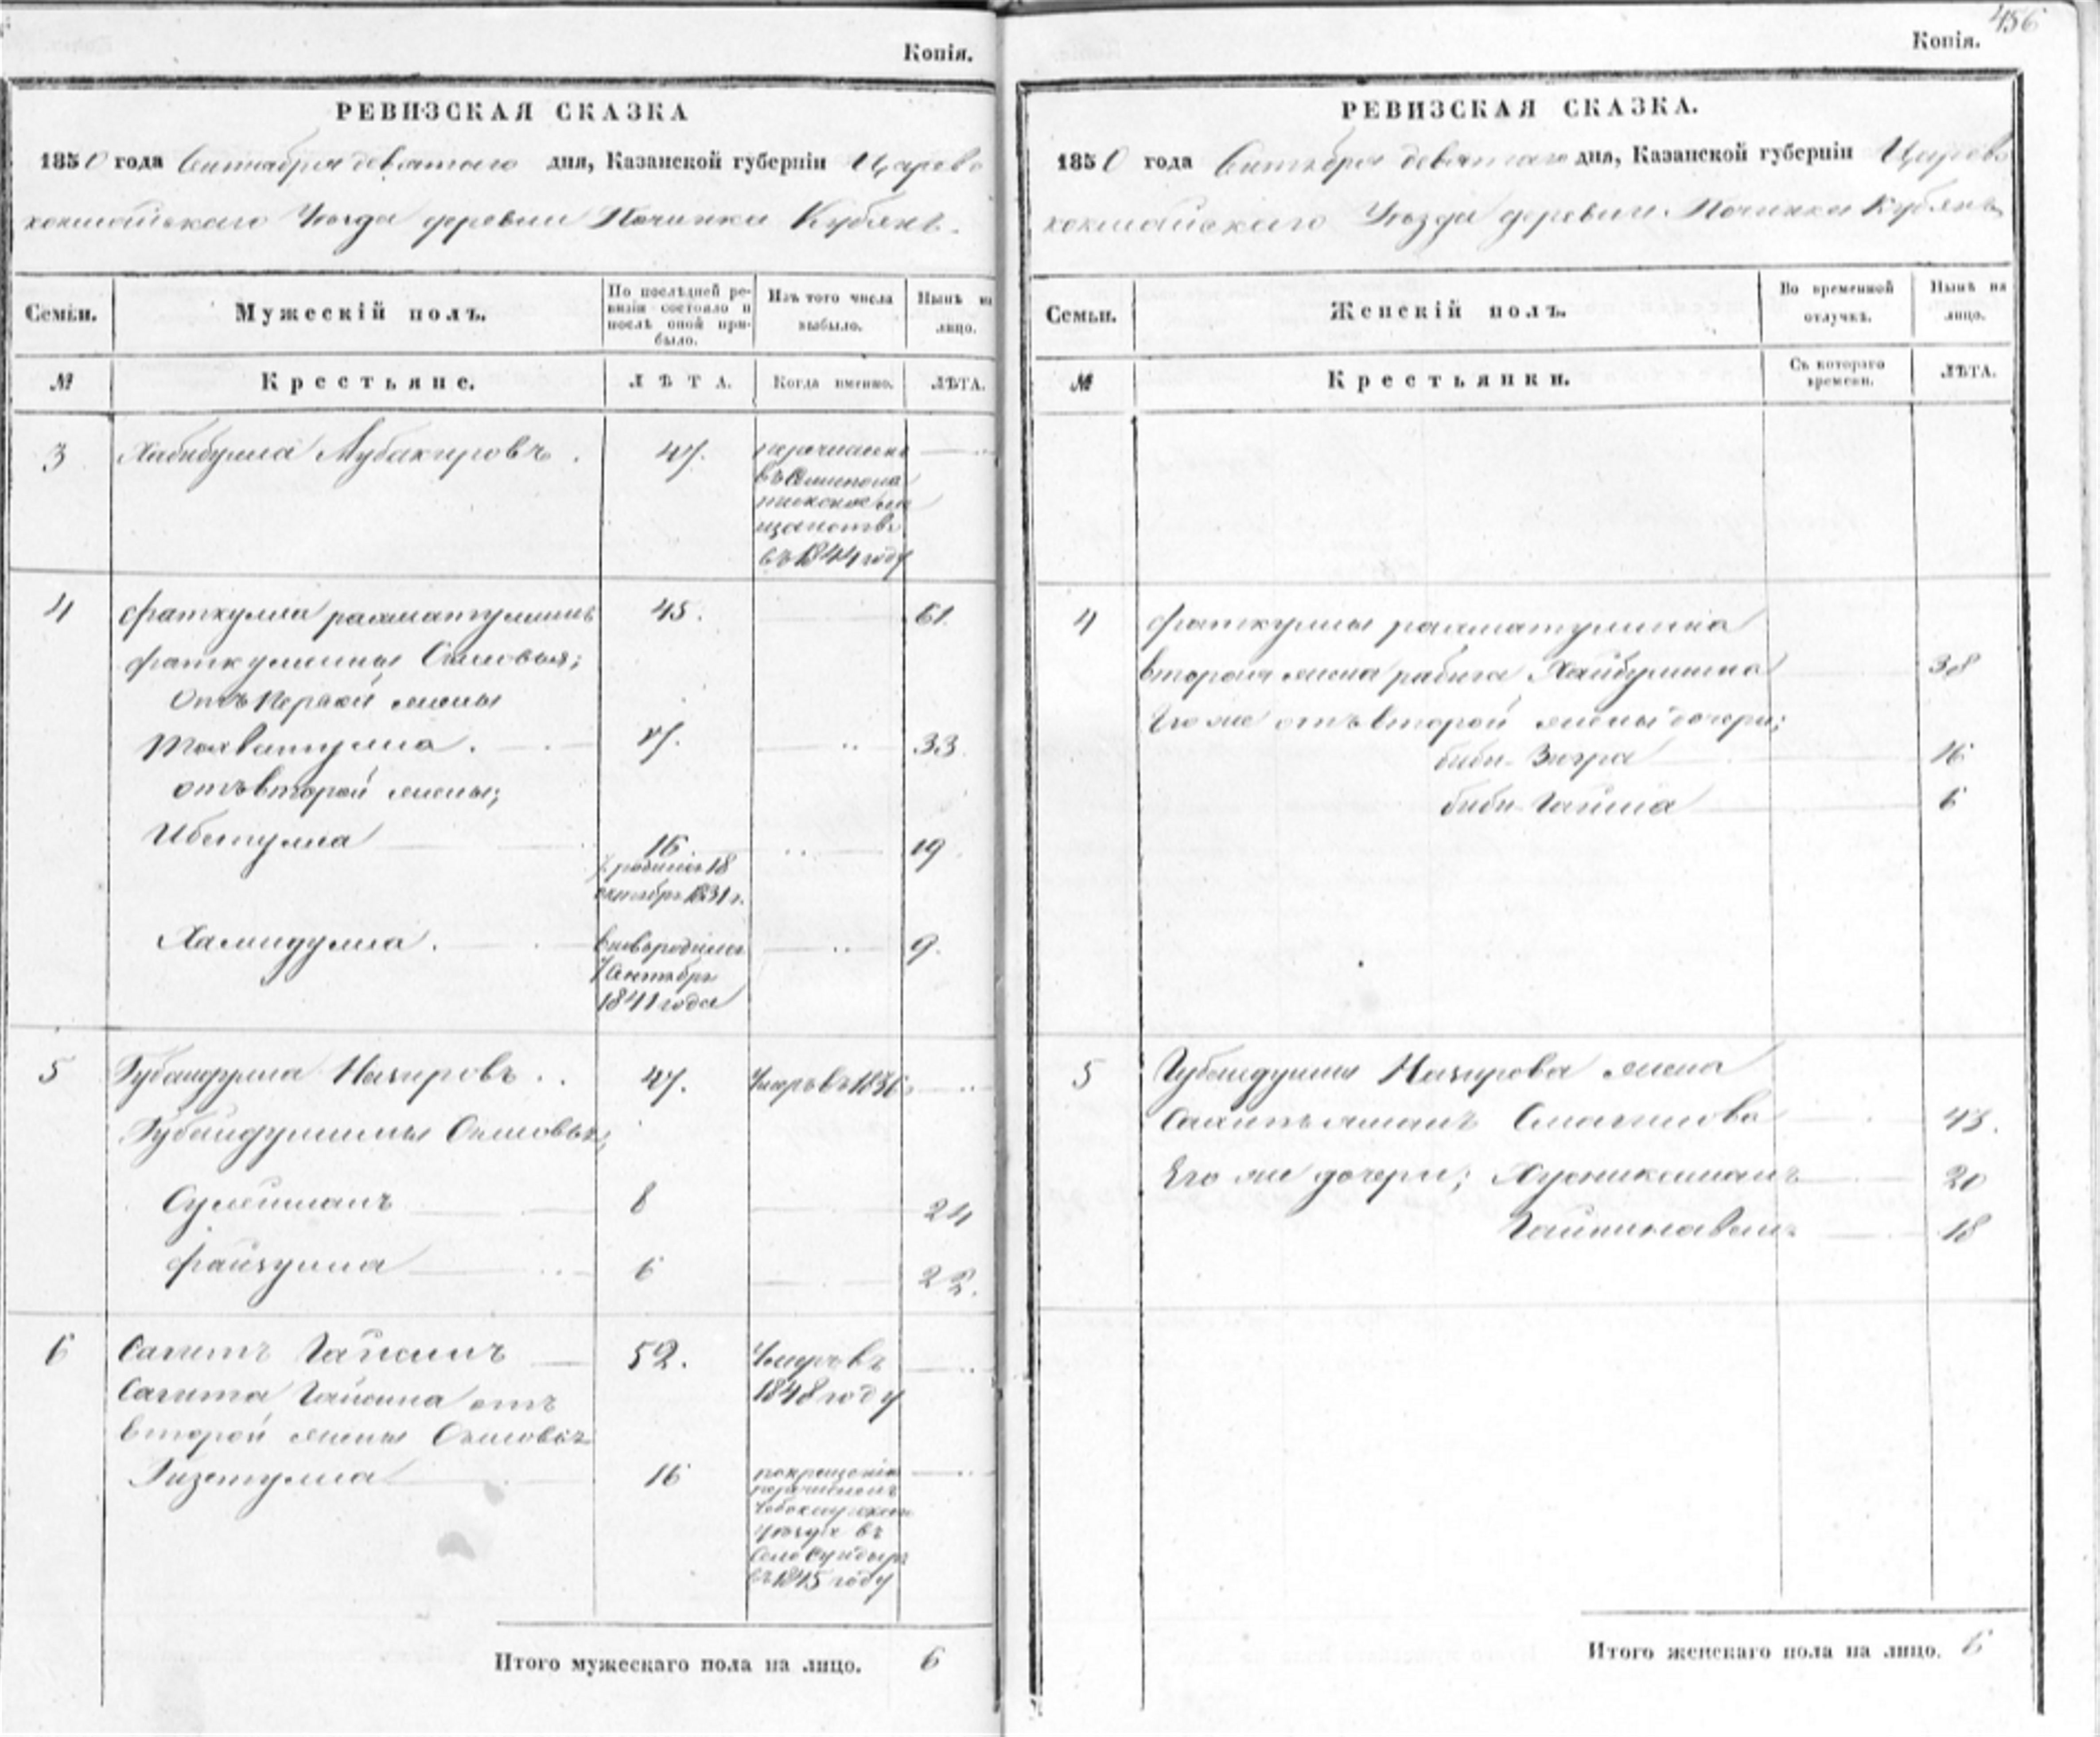 Копія.
РЕВИЗСКАЯ СКАЗКА
1850 года Сентября девятаго дня, Казанской губерніи Царево
кокшайскаго Уѣзда деревни Починка Кубянъ.
Семьи.
Мужескій полъ.
По послѣдней ре-
визіи состояло и
послѣ оной при-
было.
Изъ того числа
выбыло.
Нынѣ на
лицо.
№
Крестьяне.
ЛѢТА.
Когда именно.
ЛѢТА.
3 Хабибулла Мубакировъ. 47. перечисленъ
въ Семипола
тинское мѣ
щанство
въ 1844 году
4 Фаткулла рахматуллинъ 45. 61.
Фаткуллины Сыновья;
Отъ Первой жены
Мохватулла. 17. 33.
отъ второй жены;
Ибетулла 16. 19.
родился 18
октября 1831 г.
Хамидулла. вновь родился 9.
7 Сентября
1841 года
5 Губайдулла Назировъ.. 47. Умеръ въ 1836
Губайдуллины Сыновья;
Сулейманъ 8 24
Файзулла 6 22.
6 Сагитъ Гайсинъ 52. Умеръ въ
1848 году
Сагита Гайсина отъ
второй жены Сыновья
Гизетулла 16 по крещеніи
перечисленъ
Чебоксарскаго
уѣзда въ
Село Сундырь
въ 1845 году
Итого мужескаго пола на лицо. 6
456
Копія.
РЕВИЗСКАЯ СКАЗКА.
1850 года Сентября девятаго дня, Казанской губерніи Царево
кокшайскаго Уѣзда деревни Починка Кубянъ
Семьи.
Женскій полъ.
Во временной
отлучкѣ.
Нынѣ на
лицо.
№
Крестьянки.
Съ котораго
времени.
ЛѢТА.
4 Фаткуллы рахматуллина
вторая жена рабига Хайбуллина 38
Его же отъ второй жены дочери;
биби-Зюгра 16
биби-Гайша 6
5 Губайдуллы Назирова жена
Сахипъ жамалъ Смагилова 43.
Его же дочери; Хусникамалъ 20
18
Итого женскаго пола на лицо. 6